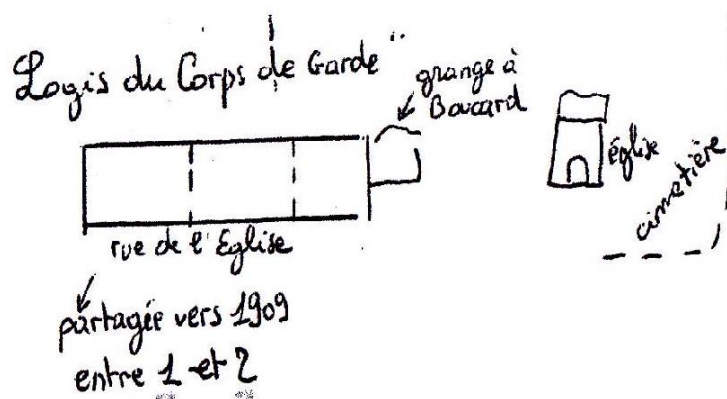 Logis du Corps de Garde"
grange à
Boucard
église
cimetière
rue de l'Eglise
partagée vers 1909
entre 1 et 2